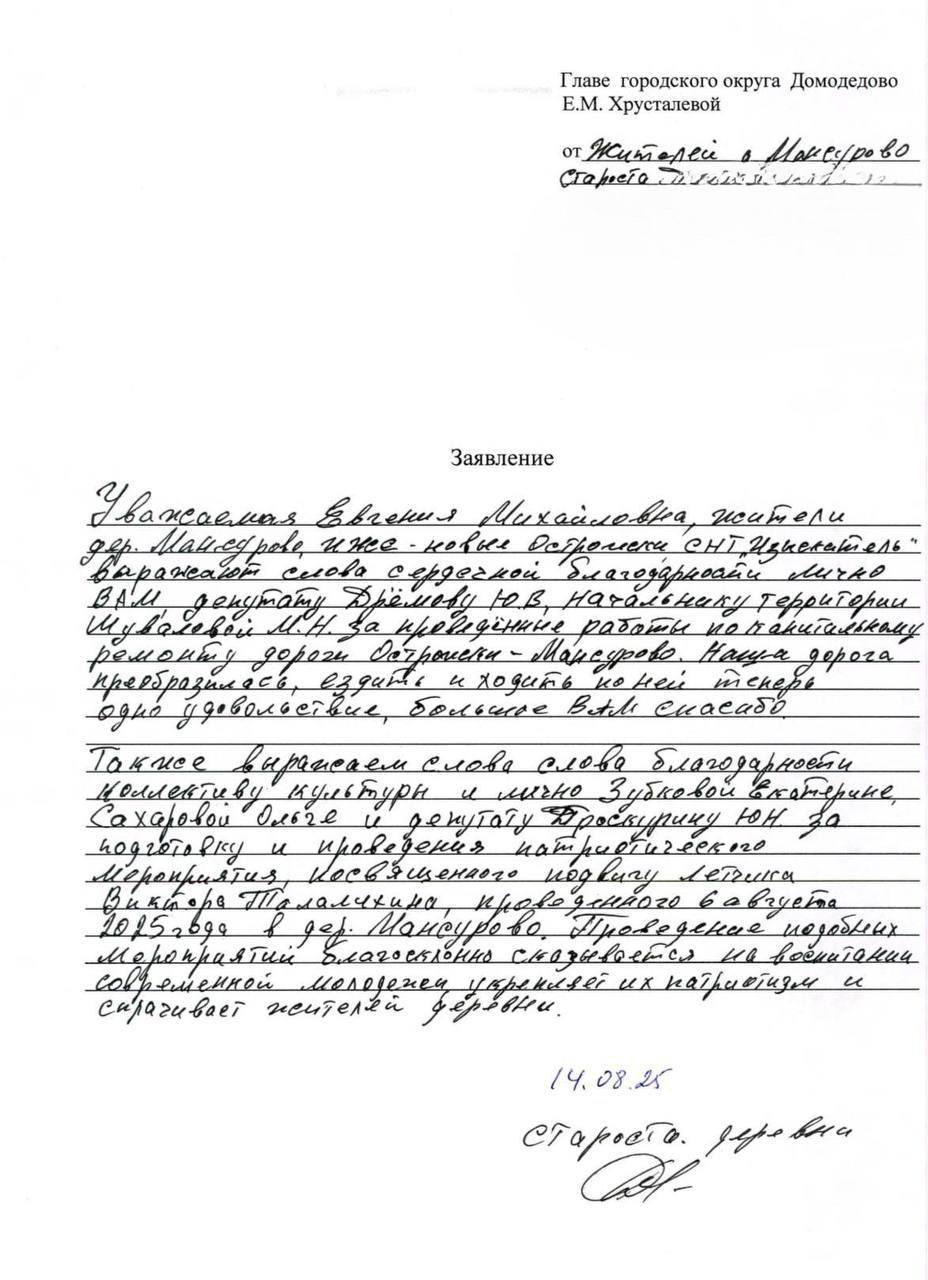 Главе городского округа Домодедово
Е.М. Хрусталевой
от Жителей д Мансурово
староста
Заявление
Уважаемая Евгения Михайловна, жители
дер. Мансурово, ИЖС - новые Острожки СНТ „Изыскатель"
выражают слова сердечной благодарности лично
ВАМ, депутату Дрёмову Ю.В, начальнику территории
Шуваловой М.Н. за проведённые работы по капитальному
ремонту дороги - Мансурово. Наша дорога
преобразилась, ездить и ходить по ней теперь
одно удовольствие, большое ВАМ спасибо.
Также выражаем слова слова благодарности
коллективу культуры и лично Зубковой Екатерине,
Сахаровой Ольге и депутату Проскурину Ю.Н. за
подготовку и проведения патриотического
мероприятия, посвященного подвигу летчика
Виктора Талалихина, проведенного 6 августа
2025 года в дер. Мансурово. Проведение подобных
мероприятий благосклонно сказывается на воспитании
современной молодежи, укрепляет их патриотизм и
сплачивает жителей деревни.
14.08.25
староста. деревни